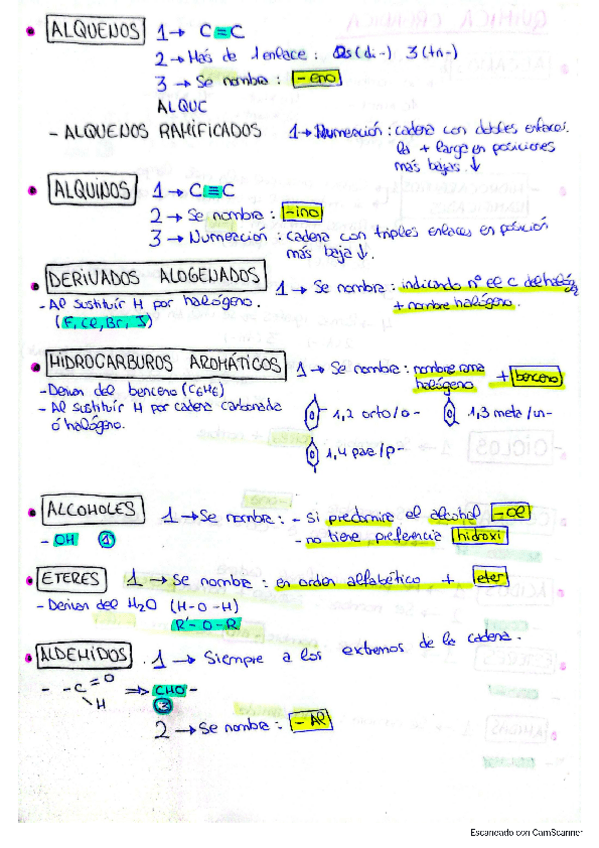 ALQUENOS 1→ C=C
2→ Más de 1 enlace: 2s (di-) 3 (tri-)
3→ Se nombra: -eno
ALQUC
- ALQUENOS RAMIFICADOS 1→ Numeración: cadena con dobles enlaces.
la + larga en posiciones
más bajas. ↓
ALQUINOS 1→ C≡C
2→ Se nombra: -ino
3→ Numeración: cadena con triples enlaces en posición
más baja ↓.
DERIVADOS ALOGENADOS 1→ Se nombra: indicando nº el C del halóg
- Al sustituir H por halógeno. + nombre halógeno.
(F, Cl, Br, I)
HIDROCARBUROS AROMÁTICOS 1→ Se nombra: nombre rama + benceno
halógeno
- Derivan del benceno (C6H6)
- Al sustituir H por cadena carbonada
ó halógeno.
1,2 orto/o- 1,3 meta/m-
1,4 para/p-
ALCOHOLES 1→ Se nombra: - si predomina el alcohol -ol
- OH 1 - no tiene preferencia hidroxi
ETERES 1→ Se nombra: en orden alfabético + eter
- Derivan del H2O (H-O-H)
R'-O-R
ALDEHIDOS 1→ Siempre a los extremos de la cadena.
- -C=O
H
⇒ CHO-
2→ Se nombra: -Al
Escaneado con CamScanner